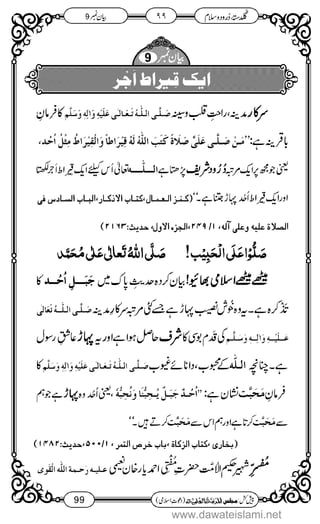 گلدستۂ دُرُود و سلام ۹۹ بیان نمبر 9
بیان نمبر 9
ایک قیراط اَجْر
سرکارِ مدینہ، راحتِ قلب و سینہ صَلَّی اللہُ تَعَالٰی عَلَیْہِ وَاٰلِہٖ وَسَلَّمَ کا فرمانِ
باقرینہ ہے: ”مَنْ صَلّٰی عَلَیَّ صَلَاۃً کَتَبَ اللّٰہُ لَہٗ قِیْرَاطًا وَالْقِیْرَاطُ مِثْلُ اُحُد،
یعنی جو مجھ پر ایک مرتبہ دُرُود شریف پڑھتا ہے اللہ تعالٰی اُس کیلئے ایک قیراط اَجْر لکھتا
اور ایک قیراط اُحُد پہاڑ جتنا ہے۔“ (کنز العمال، کتاب الاذکار، الباب السادس فی
الصلاۃ علیہ وعلی آلہ، ۱/۲۴۹، الجزء الاول، حدیث: ۲۱۶۳)
صَلُّوْا عَلَی الْحَبِیْب! صَلَّی اللہُ تَعَالٰی عَلٰی مُحَمَّد
میٹھے میٹھے اسلامی بھائیو! بیان کردہ حدیثِ پاک میں جَبَلِ اُحُد کا
تذکرہ ہے۔ یہ وہ خوش نصیب پہاڑ ہے جسے کئی مرتبہ سرکارِ مدینہ صَلَّی اللہُ تَعَالٰی
عَلَیْہِ وَاٰلِہٖ وَسَلَّم کی قدم بوسی کا شرف حاصل ہوا ہے اور یہ پہاڑ عاشقِ رسول
ہے۔ چنانچہ اللہ کے محبوب، دانائے غیوب صَلَّی اللہُ تَعَالٰی عَلَیْہِ وَاٰلِہٖ وَسَلَّم کا
فرمانِ مَحَبَّت نشان ہے: ”اُحُدٌ جَبَلٌ یُحِبُّنَا وَنُحِبُّہٗ، یعنی اُحُد وہ پہاڑ ہے جو ہم
سے مَحَبَّت کرتا ہے اور ہم اس سے مَحَبَّت کرتے ہیں۔“
(بخاری، کتاب الزکاۃ، باب خرص التمر، ۱/۵۰۰، حدیث: ۱۴۸۲)
مُفَسِّرِ شہیر حکیم الاُمَّت حضرت مفتی احمد یار خان نعیمی علیہ رحمۃ اللہ القوی
پیش کش: مجلس المدینۃ العلمیۃ (دعوتِ اسلامی) 99
www.dawateislami.net